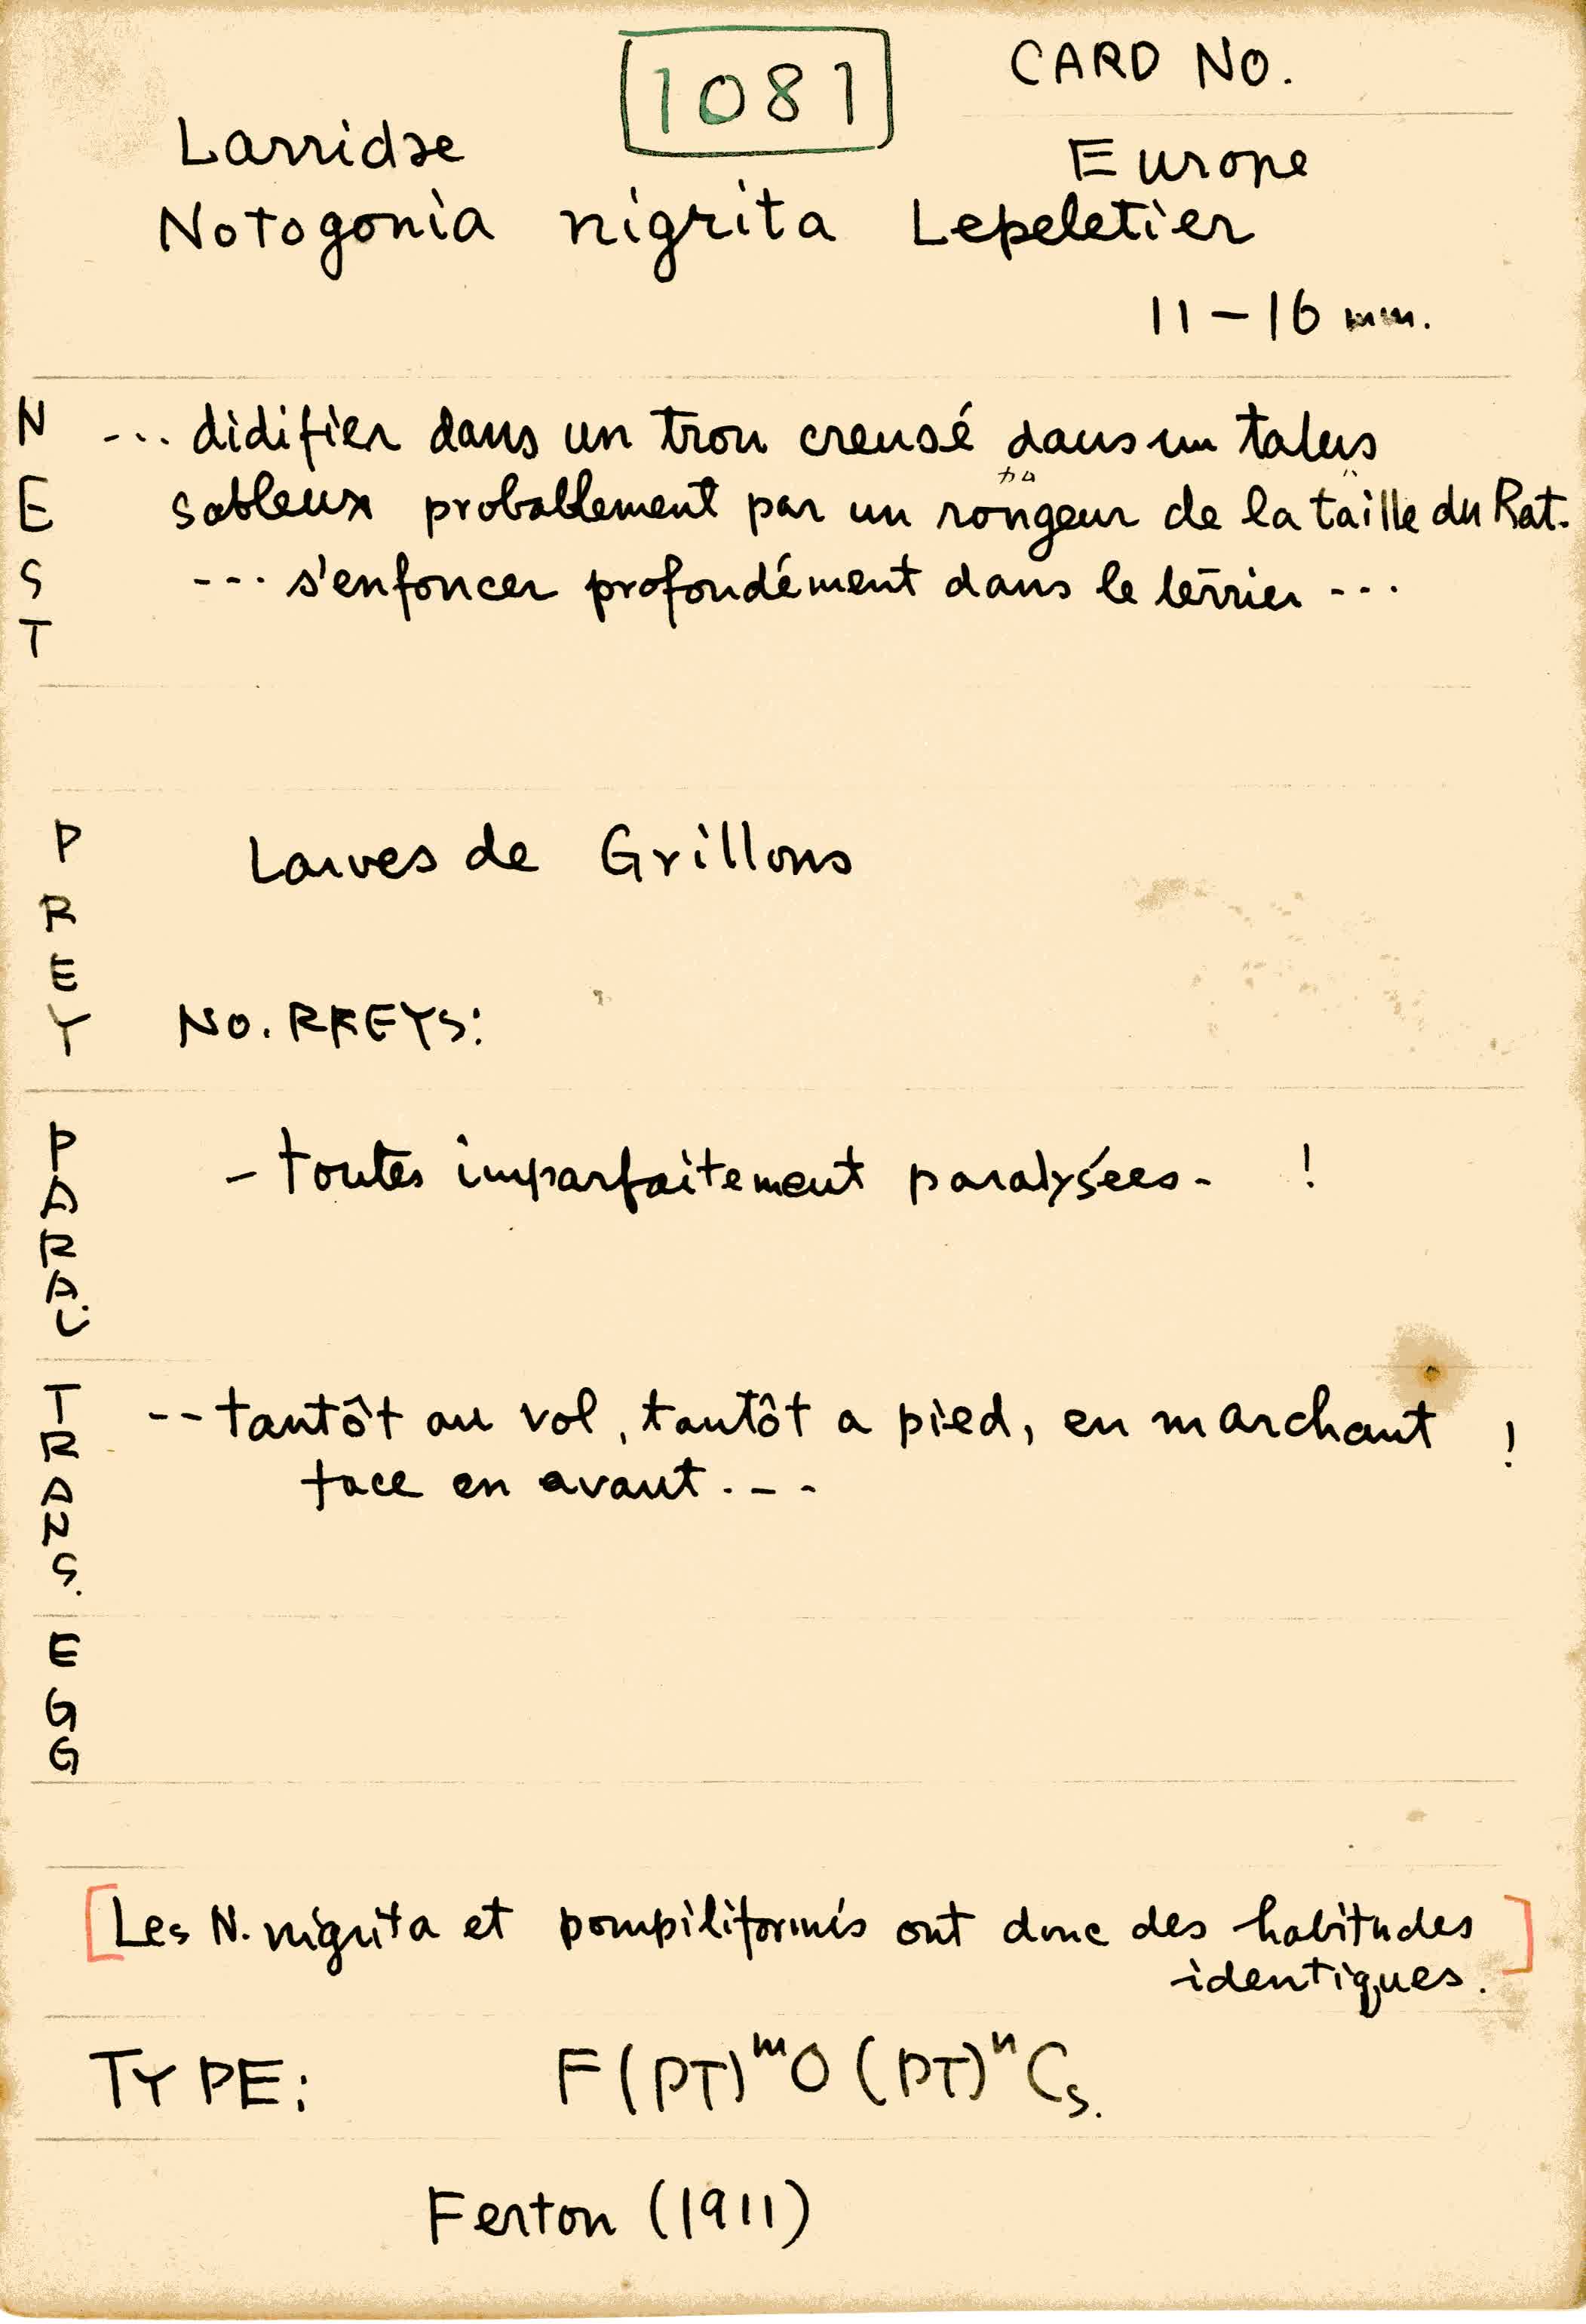 1081
CARD NO.
Larridae
Europe
Notogonia nigrita Lepeletier
11-16 mm.
NEST
... didifier dans un trou creusé dans un talus
sableux probablement par un rongeur de la taille du Rat.
--- s'enfoncer profondément dans le terrier ---
PREY
Larves de Grillons
NO. PREYS:
PARAL.
- toutes imparfaitement paralysées - !
TRANS.
-- tantôt au vol, tantôt a pied, en marchant !
face en avant. --
EGG
[Les N. nigrita et pompiliformis ont donc des habitudes
identiques.]
TYPE: F(PT)ᵐO(PT)ⁿCs.
Ferton (1911)